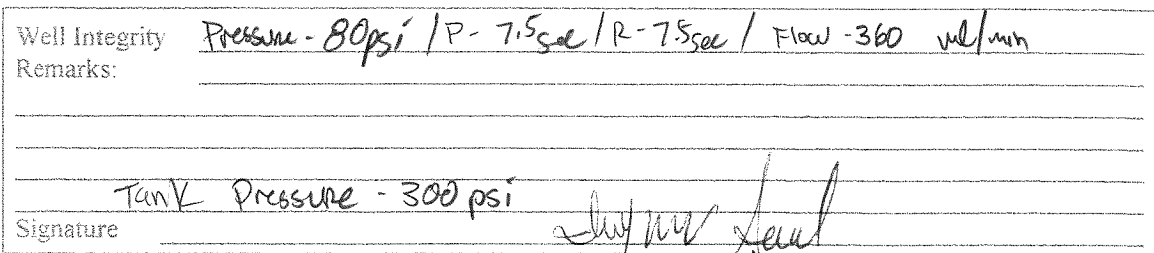 Well Integrity Pressure - 80psi / P - 7.5sec / R - 7.5sec / Flow - 360 ml/min
Remarks:
Tank Pressure - 300 psi
Signature